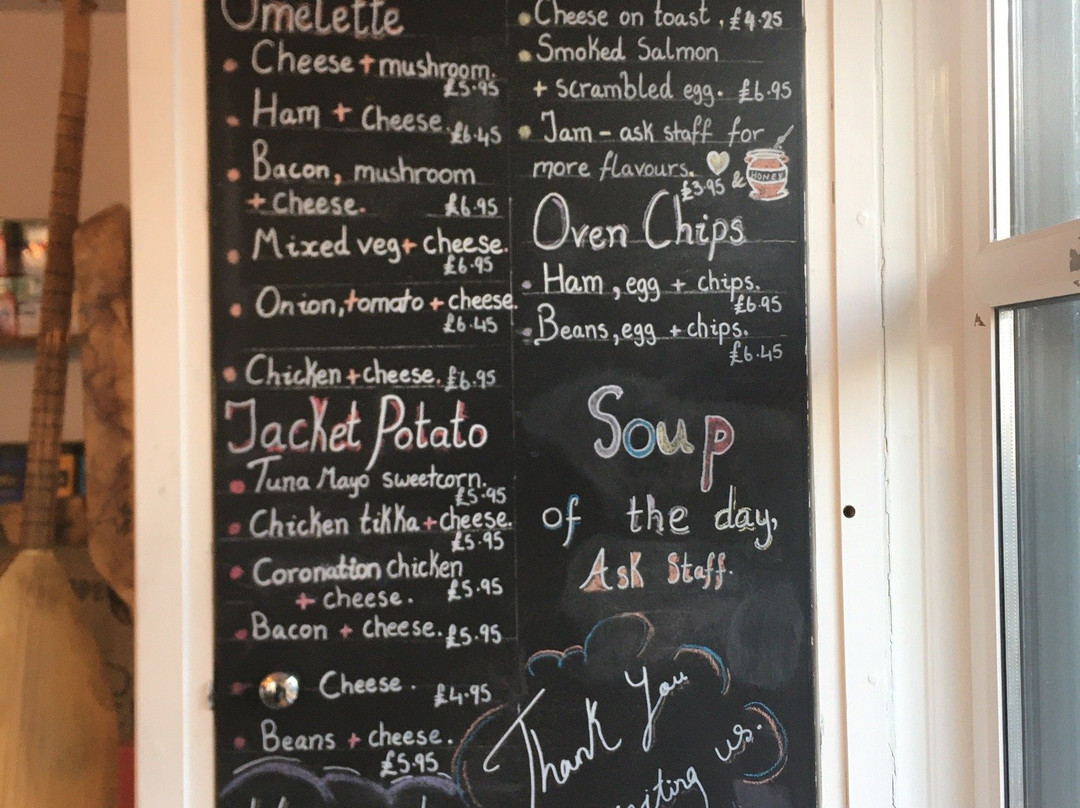 Omelette
Cheese + mushroom.
£5.95
Ham + cheese. £6.45
Bacon, mushroom
+ cheese. £6.95
Mixed veg + cheese.
£6.95
Onion, tomato + cheese.
£6.45
Chicken + cheese. £6.95
Jacket Potato
Tuna Mayo sweetcorn.
£5.95
Chicken tikka + cheese.
£5.95
Coronation chicken
+ cheese. £5.95
Bacon + cheese. £5.95
Cheese. £4.95
Beans + cheese.
£5.95
Cheese on toast, £4.25
Smoked Salmon
+ scrambled egg. £6.95
Jam - ask staff for
more flavours.
£3.95 & HONEY
Oven Chips
Ham, egg + chips.
£6.95
Beans, egg + chips.
£6.45
Soup
of the day,
Ask Staff.
Thank You
us.